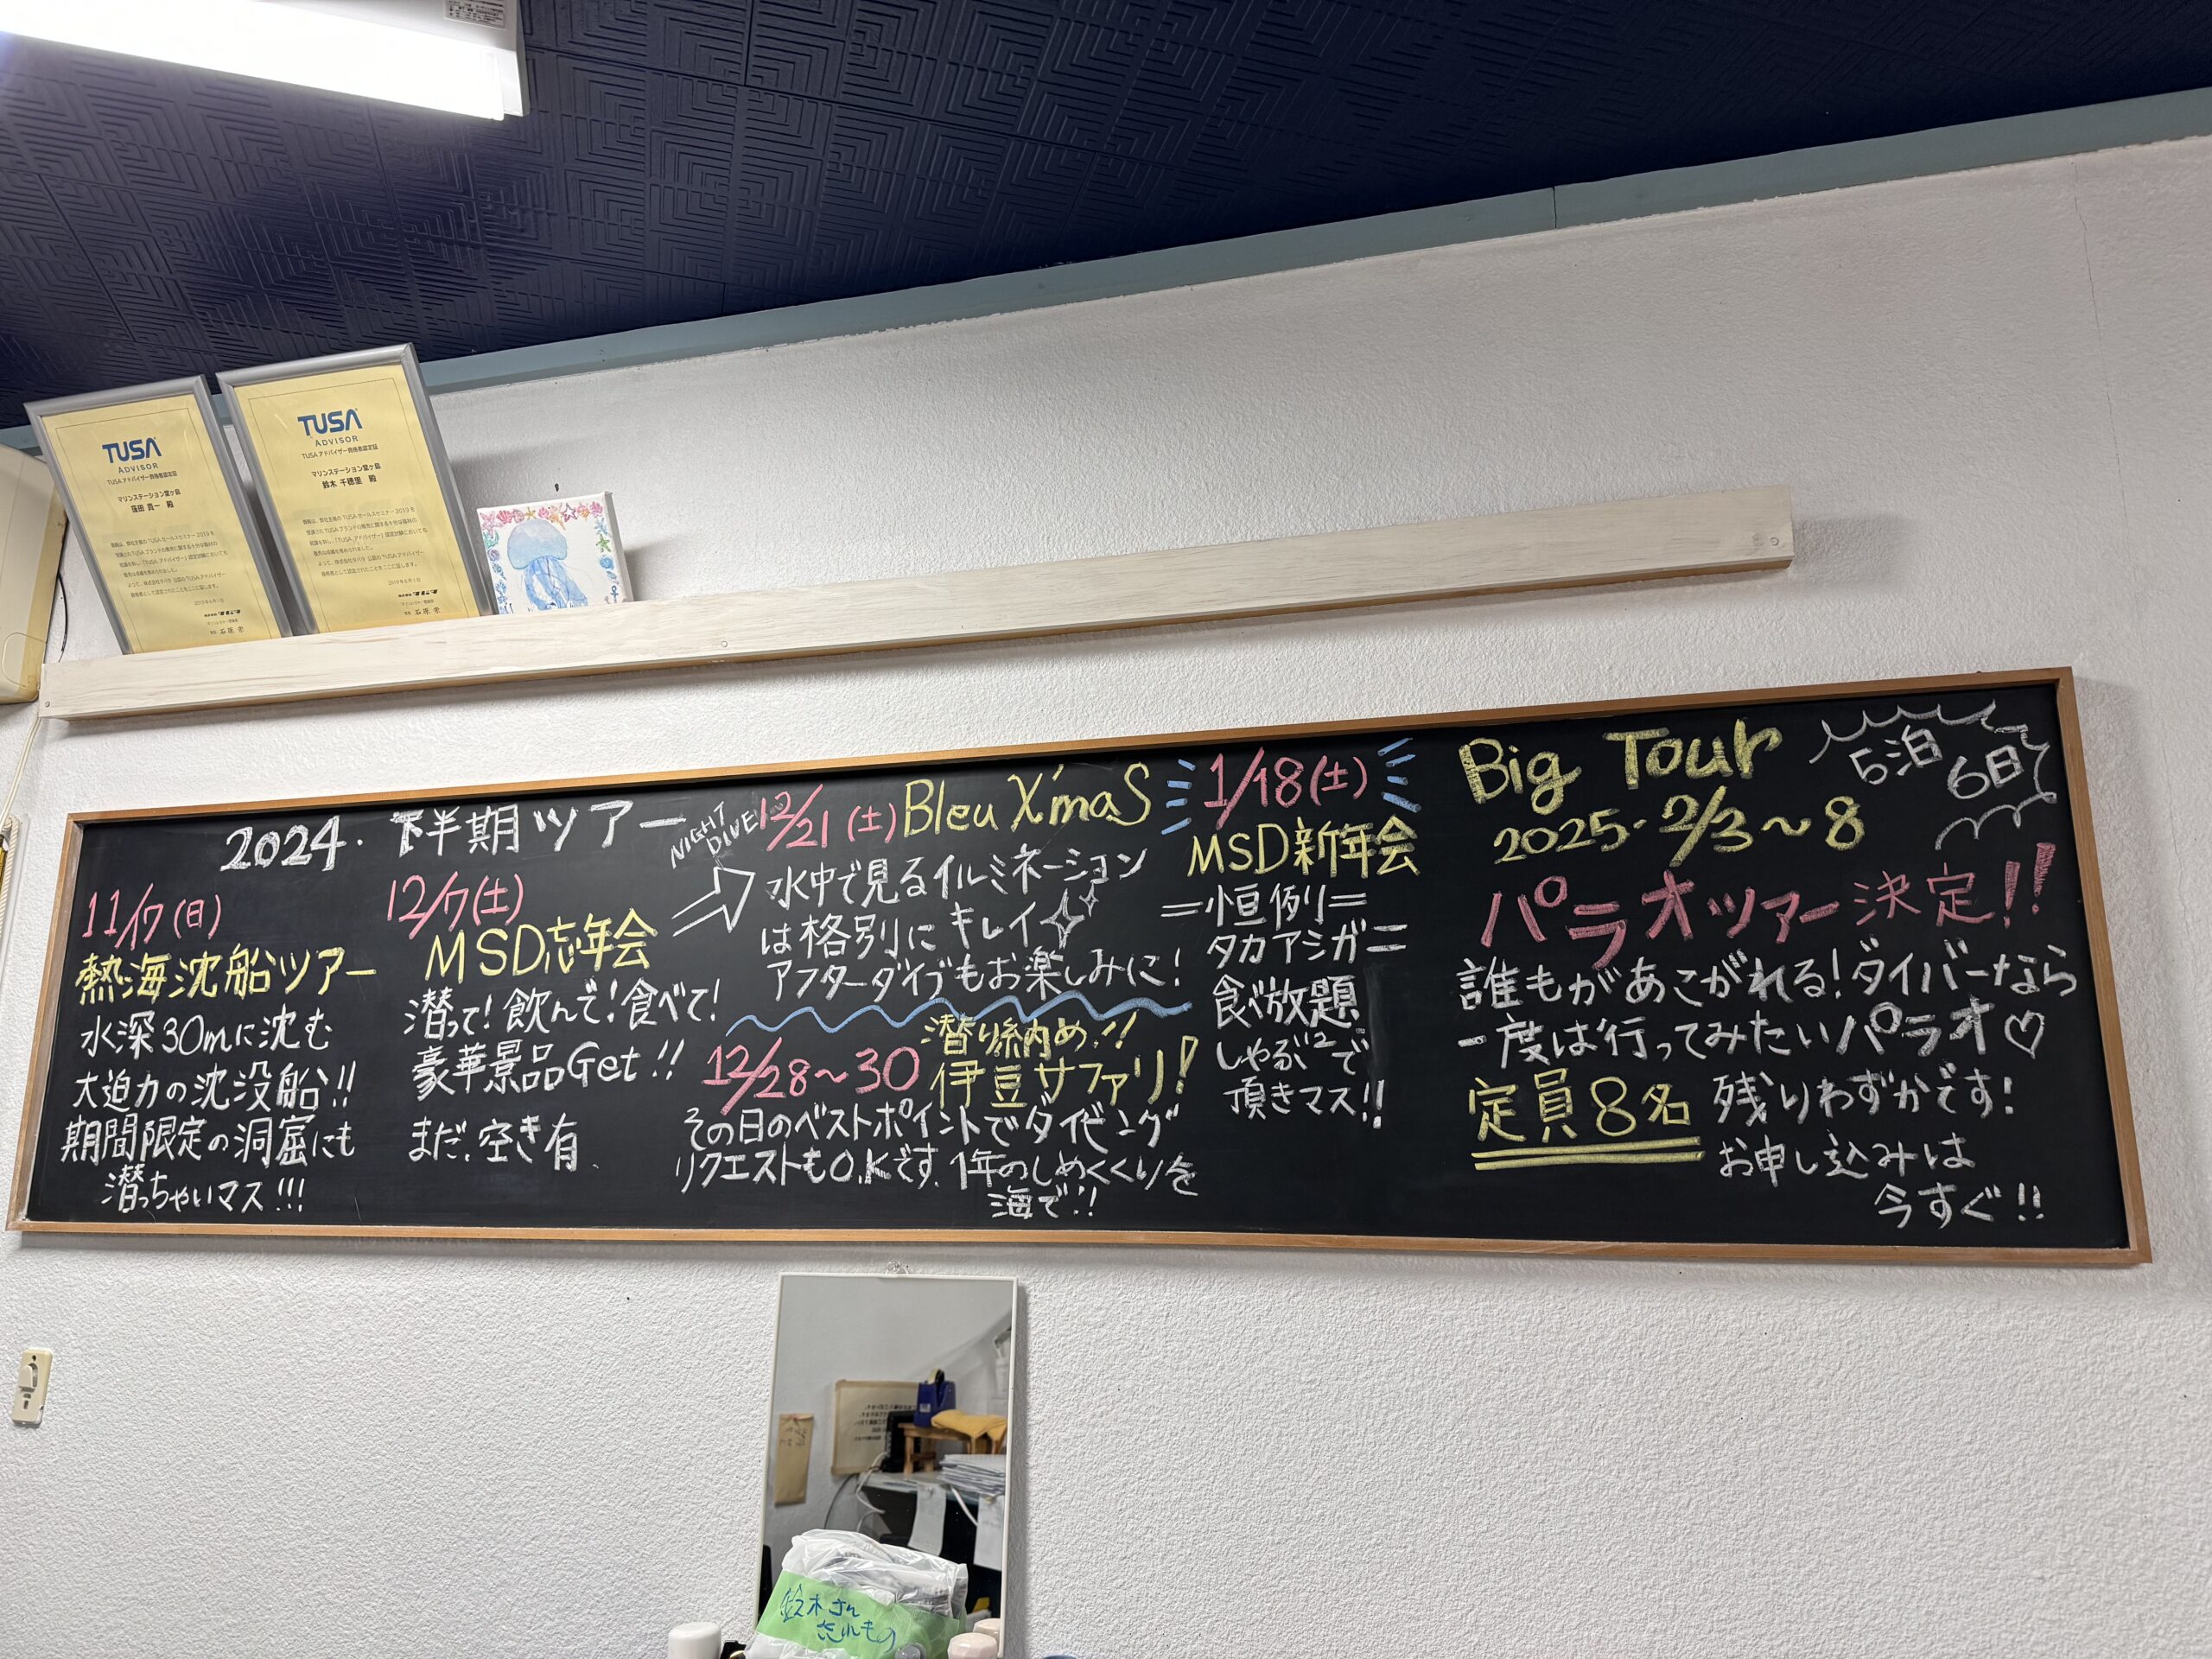 TUSA
ADVISOR
TUSAアドバイザー資格者認定証
マリンステーション堂ヶ島
窪田 真一 殿
TUSA
ADVISOR
TUSAアドバイザー資格者認定証
マリンステーション堂ヶ島
鈴木 千穂里 殿
2024. 下半期ツアー
11/17(日)
熱海沈船ツアー
水深30mに沈む
大迫力の沈没船!!
期間限定の洞窟にも
潜っちゃいマス!!!
12/7(土)
MSD忘年会
潜って!飲んで!食べて!
豪華景品Get!!
まだ、空き有、
NIGHT
DIVE!
12/21(土) Bleu X'mas
水中で見るイルミネーション
は格別にキレイ
アフターダイブもお楽しみに!
潜り納め!!
12/28~30 伊豆サファリ!
その日のベストポイントでダイビング
リクエストもO.Kです。1年のしめくくりを
海で!!
1/18(土)
MSD新年会
=恒例=
タカアシガニ
食べ放題
しゃぶ²で
頂きマス!!
Big Tour
5泊
6日
2025.2/3~8
パラオツアー決定!!
誰もがあこがれる!ダイバーなら
一度は行ってみたいパラオ♡
定員8名 残りわずかです!
お申し込みは
今すぐ!!
鈴木さん
忘れもの